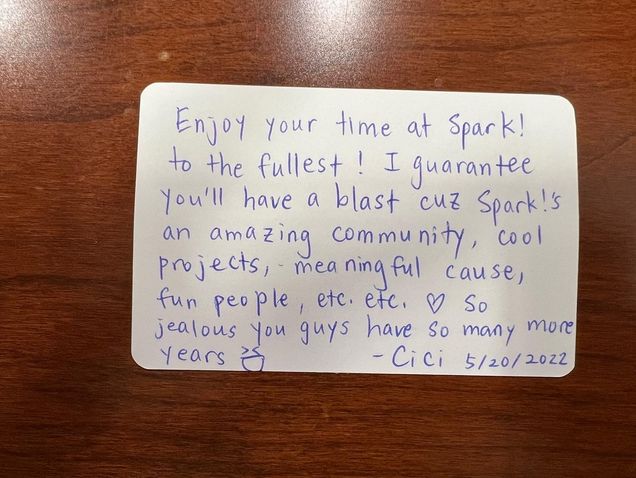 Enjoy your time at Spark!
to the fullest! I guarantee
you'll have a blast cuz Spark!'s
an amazing community, cool
projects, meaningful cause,
fun people, etc. etc. ♡ So
jealous you guys have so many more
years
- CiCi 5/20/2022